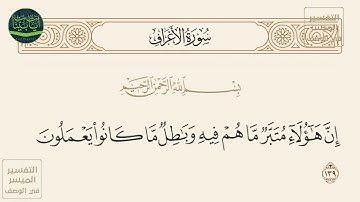 سُورَةُ الأَعْرَافِ
التفسير
الميسر
في الوصف
بِسْمِ اللَّهِ الرَّحْمَٰنِ الرَّحِيمِ
إِنَّ هَٰٓؤُلَآءِ مُتَبَّرٌ مَّا هُمْ فِيهِ وَبَٰطِلٌ مَّا كَانُوا۟ يَعْمَلُونَ
١٣٩
التفسير
الميسر
في الوصف